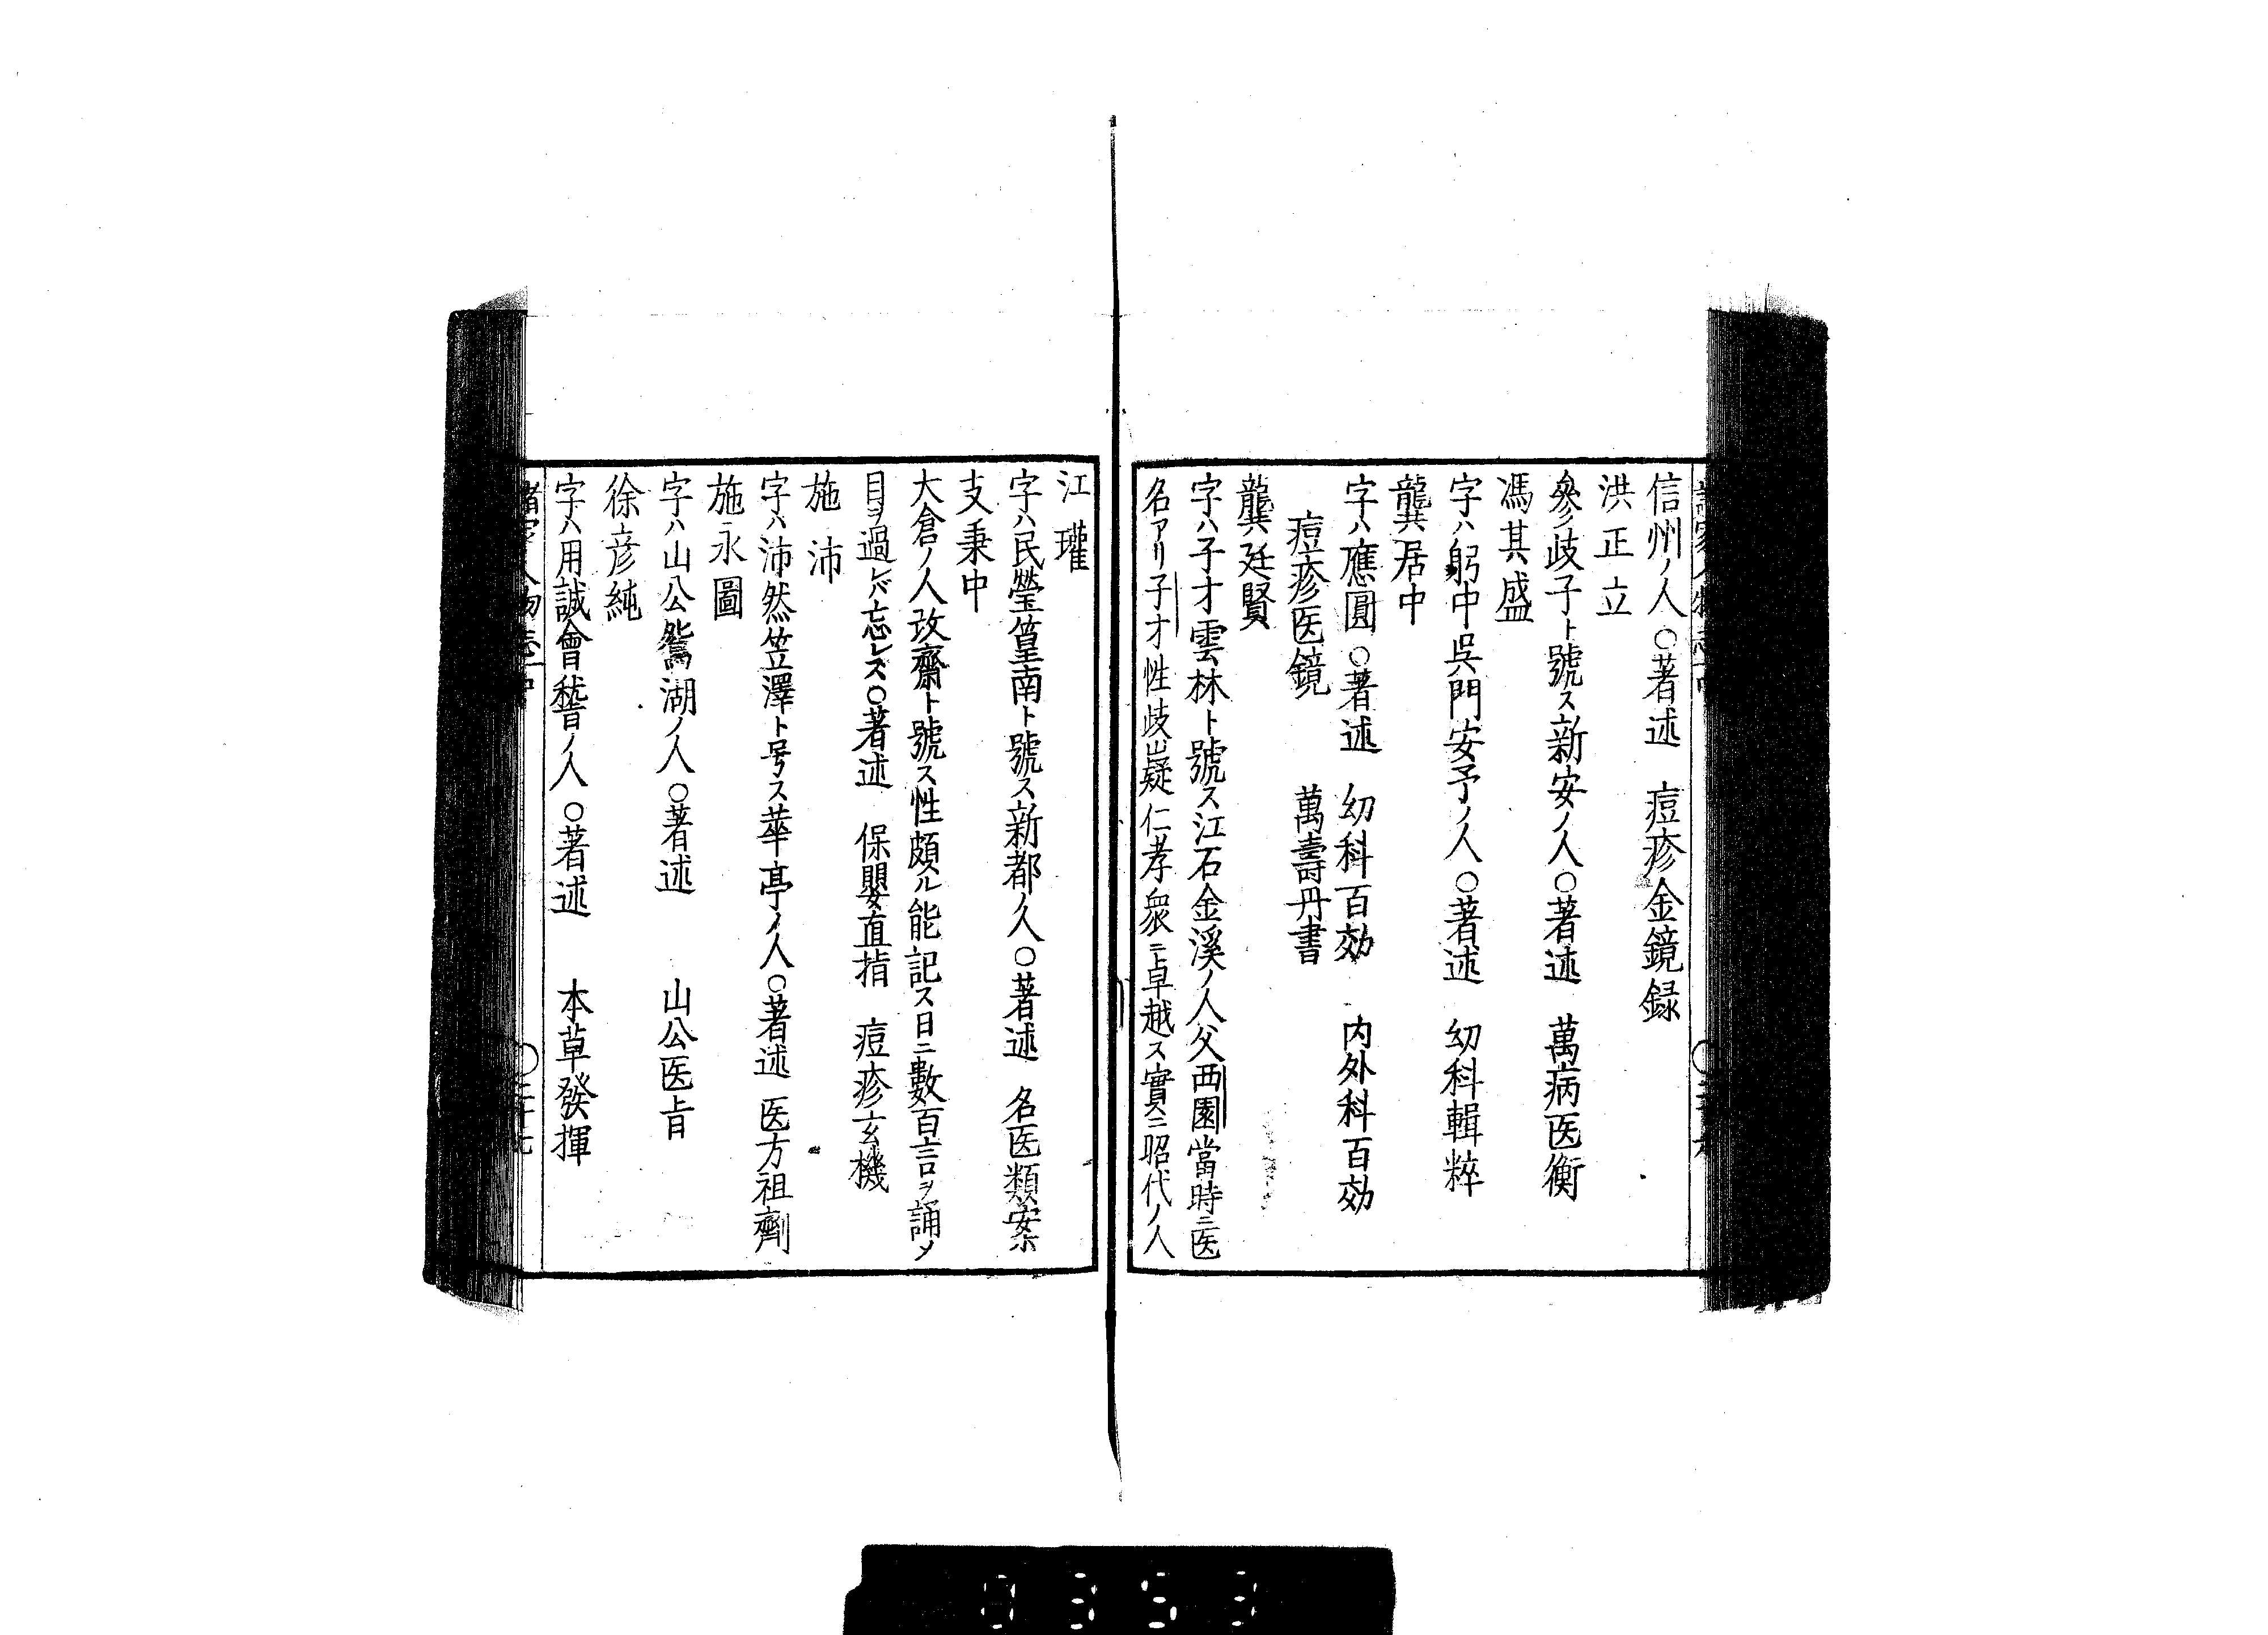 信州ノ人○著述　痘疹金鏡録
洪正立
參歧子ト號ス新安ノ人○著述　萬病医衡
馮其盛
字ハ躬中呉門安予ノ人○著述　幼科輯粹
龔居中
字ハ應圓○著述　幼科百効　内外科百効
痘疹医鏡　萬壽丹書
龔廷賢
字ハ子才雲林ト號ス江石金溪ノ人父西園當時ニ医
名アリ子才性歧嶷仁孝衆ニ卓越ス實ニ昭代ノ人
江瓘
字ハ民瑩篁南ト號ス新都ノ人○著述　名医類案
支秉中
大倉ノ人改齋ト號ス性頗ル能記ス日ニ數百言ヲ誦メ
目ヲ過レバ忘レス○著述　保嬰直指　痘疹玄機
施沛
字ハ沛然笠澤ト号ス華亭ノ人○著述　医方祖劑
施永圖
字ハ山公鴛湖ノ人○著述　山公医旨
徐彦純
字ハ用誠會稽ノ人○著述　本草發揮
0353